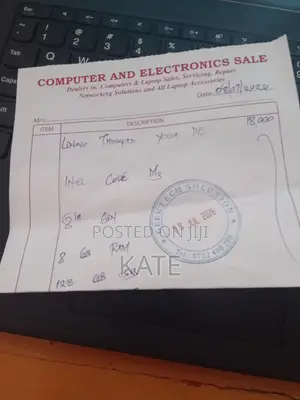 COMPUTER AND ELECTRONICS SALE
Dealers in: Computers & Laptop Sales, Servicing, Repair
Networking Solutions and All Laptop Accessories
M/s
Date
ITEM DESCRIPTION
18,000
LENOVO THINKPAD YOGA
INTEL CORE M3
8th GEN
8 GB RAM
128 GB SSD
TECH SOLUTION
JUL 2026
POSTED ON JIJI
KATE
Caps